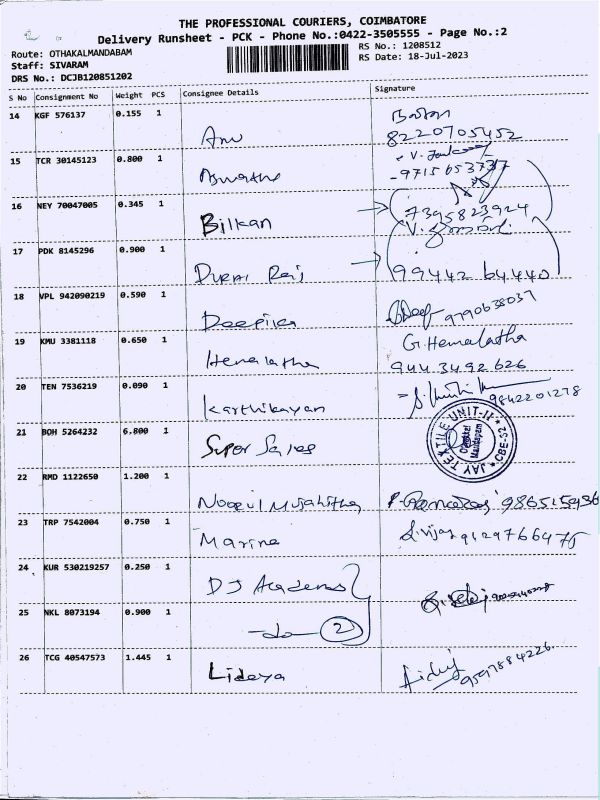 THE PROFESSIONAL COURIERS, COIMBATORE
Delivery Runsheet - PCK - Phone No.:0422-3505555 - Page No.:2
Route: OTHAKALMANDABAM
RS No.: 1208512
Staff: SIVARAM
RS Date: 18-Jul-2023
DRS No.: DCJB120851202
S No Consignment No Weight PCS Consignee Details Signature
14 KGF 576137 0.155 1
Anu 8220705452
15 TCR 30145123 0.800 1
Aswathe -9715653737
16 NEY 70047005 0.345 1
Bilkan 7395823924
17 PDK 8145296 0.900 1
Durai Raj 9944264440
18 VPL 942090219 0.590 1
Deepika 9790638037
19 KMU 3381118 0.650 1 G. Hemalatha
Hemalatha 9443492626
20 TEN 7536219 0.090 1
Karthikayan 9842201278
21 BOH 5264232 6.800 1
Super Sales JAY TEXTILE UNIT-II CBE-
22 RMD 1122650 1.200 1
Noorul Mujahitha
23 TRP 7542004 0.750 1
Marina S. Vijay 9129766475
24 KUR 530219257 0.250 1
DJ Academy
25 NKL 8073194 0.900 1
-do- 2
26 TCG 40547573 1.445 1
Lideya 9597884226